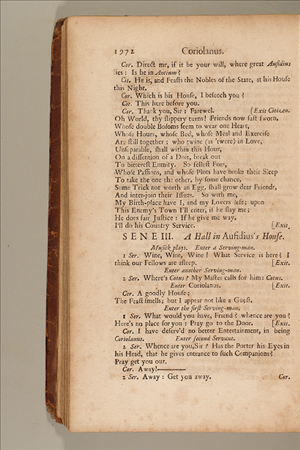 1972 Coriolanus.
Cor. Direct me, if it be your will, where great Aufidius
lies: Is he in Antium?
Cit. He is, and Feasts the Nobles of the State, at his House
this Night.
Cor. Which is his House, I beseech you?
Cit. This here before you.
Cor. Thank you, Sir: Farewel. [Exit Citizen.
Oh World, thy slippery turns! Friends now fast sworn,
Whose double Bosoms seem to wear one Heart,
Whose Hours, whose Bed, whose Meal and Exercise
Are still together; who twine (as 'twere) in Love,
Unseparable, shall within this Hour,
On a dissention of a Doit, break out
To bitterest Enmity. So fellest Foes,
Whose Passions, and whose Plots have broke their Sleep
To take the one the other, by some chance,
Some Trick not worth an Egg, shall grow dear Friends,
And inter-join their Issues. So with me,
My Birth-place have I, and my Lovers left; upon
This Enemy's Town I'll enter, if he slay me;
He does fair Justice: If he give me way,
I'll do his Country Service. [Exit.
SENE III. A Hall in Aufidius's House.
Musick plays. Enter a Serving-man.
1 Ser. Wine, Wine, Wine! What Service is here! I
think our Fellows are asleep. [Exit.
Enter another Serving-man.
2 Ser. Where's Cotus? My Master calls for him: Cotus.
Enter Coriolanus. [Exit.
Cor. A goodly House;
The Feast smells; but I appear not like a Guest.
Enter the first Serving-man.
1 Ser. What would you have, Friend? whence are you?
Here's no place for you: Pray go to the Door. [Exit.
Cor. I have deserv'd no better Entertainment, in being
Coriolanus. Enter second Servant.
2 Ser. Whence are you, Sir? Has the Porter his Eyes in
his Head, that he gives entrance to such Companions?
Pray get you out.
Cor. Away!———
2 Ser. Away: Get you away. Cor.